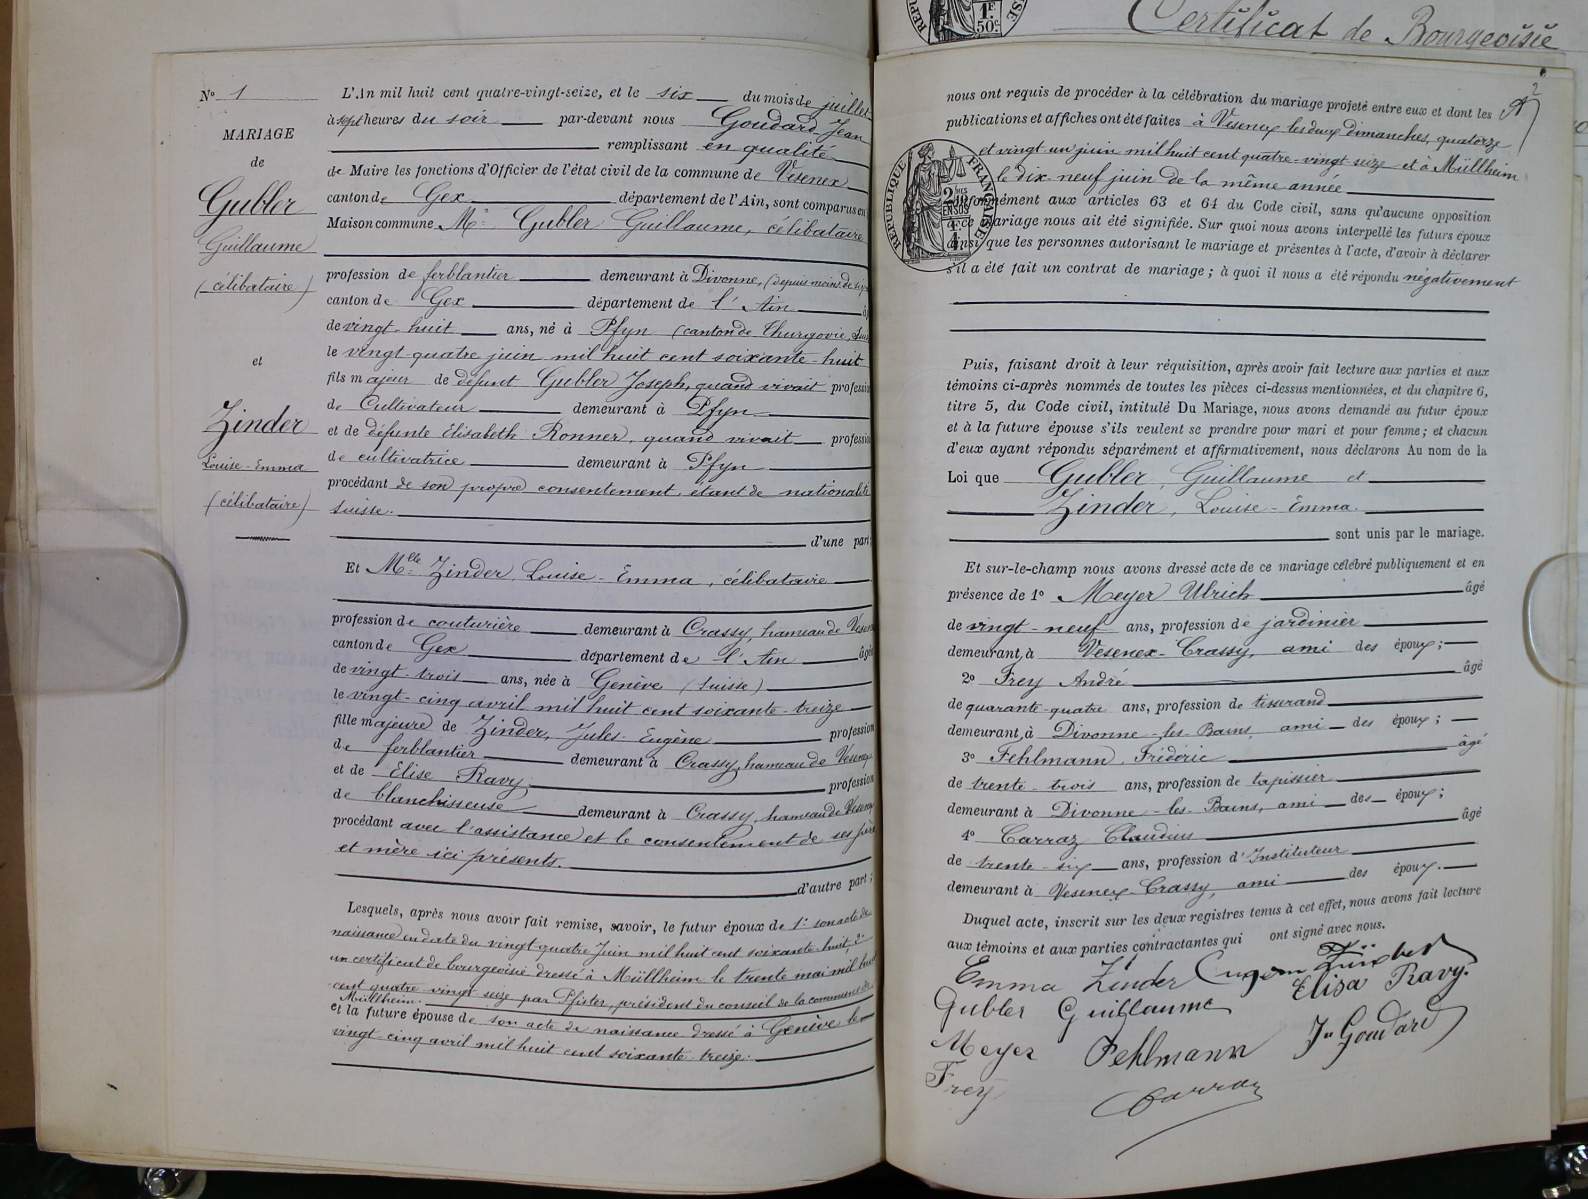 Certificat de Bourgeoisie
1F
50c
N° 1
MARIAGE
de
Gubler
Guillaume
(célibataire)
et
Zinder
Louise-Emma
(célibataire)
L'An mil huit cent quatre-vingt-seize, et le six du mois de juillet
à sept heures du soir par-devant nous Goudard Jean
remplissant en qualité
de Maire les fonctions d'Officier de l'état civil de la commune de Vesenex
canton de Gex département de l'Ain, sont comparus en
Maison commune Mr Gubler Guillaume, célibataire
profession de ferblantier demeurant à Divonne, (depuis moins de
canton de Gex département de l'Ain
de vingt-huit ans, né à Pfyn (canton de Thurgovie,
le vingt-quatre juin mil huit cent soixante-huit
fils majeur de défunt Gubler Joseph, quand vivait profession
de Cultivateur demeurant à Pfyn
et de défunte Elisabeth Ronner, quand vivait profession
de cultivatrice demeurant à Pfyn
procédant de son propre consentement, étant de nationalité
suisse.
d'une part;
Et Mlle Zinder, Louise-Emma, célibataire
profession de couturière demeurant à Crassy, hameau de Vesenex
canton de Gex département de l'Ain âgée
de vingt-trois ans, née à Genève (Suisse)
le vingt-cinq avril mil huit cent soixante-treize
fille majeure de Zinder, Jules-Eugène profession
de ferblantier demeurant à Crassy, hameau de Vesenex
et de Elise Ravy, profession
de blanchisseuse demeurant à Crassy, hameau de Vesenex
procédant avec l'assistance et le consentement de ses père
et mère ici présents.
d'autre part;
Lesquels, après nous avoir fait remise, savoir, le futur époux de 1° son acte de
naissance en date du vingt-quatre Juin mil huit cent soixante-huit, 2°
un certificat de bourgeoisie dressé à Müllheim le trente mai mil huit
cent quatre-vingt seize par Pfister, président du conseil de la commune de
Müllheim.
et la future épouse de son acte de naissance dressé à Genève le
vingt-cinq avril mil huit cent soixante-treize.
2
nous ont requis de procéder à la célébration du mariage projeté entre eux et dont les
publications et affiches ont été faites à Vesenex les deux dimanches, quatorze
et vingt un juin mil huit cent quatre-vingt seize et à Müllheim
le dix-neuf juin de la même année
RÉPUBLIQUE FRANÇAISE
conformément aux articles 63 et 64 du Code civil, sans qu'aucune opposition
à ce mariage nous ait été signifiée. Sur quoi nous avons interpellé les futurs époux
ainsi que les personnes autorisant le mariage et présentes à l'acte, d'avoir à déclarer
s'il a été fait un contrat de mariage; à quoi il nous a été répondu négativement
Puis, faisant droit à leur réquisition, après avoir fait lecture aux parties et aux
témoins ci-après nommés de toutes les pièces ci-dessus mentionnées, et du chapitre 6,
titre 5, du Code civil, intitulé Du Mariage, nous avons demandé au futur époux
et à la future épouse s'ils veulent se prendre pour mari et pour femme; et chacun
d'eux ayant répondu séparément et affirmativement, nous déclarons Au nom de la
Loi que Gubler, Guillaume et
Zinder, Louise-Emma.
sont unis par le mariage.
Et sur-le-champ nous avons dressé acte de ce mariage célébré publiquement et en
présence de 1° Meyer Ulrich âgé
de vingt-neuf ans, profession de jardinier
demeurant à Vesenex-Crassy, ami des époux;
2° Frey André âgé
de quarante-quatre ans, profession de tisserand
demeurant à Divonne-les-Bains, ami des époux;
3° Fehlmann, Frédéric âgé
de trente-trois ans, profession de tapissier
demeurant à Divonne-les-Bains, ami des époux;
4° Carraz Claudius âgé
de trente-six ans, profession d'Instituteur
demeurant à Vesenex-Crassy, ami des époux.
Duquel acte, inscrit sur les deux registres tenus à cet effet, nous avons fait lecture
aux témoins et aux parties contractantes qui ont signé avec nous.
Emma Zinder
Elisa Ravy.
Gubler Guillaume
Meyer Fehlmann Jn Goudard
Frey
Carraz